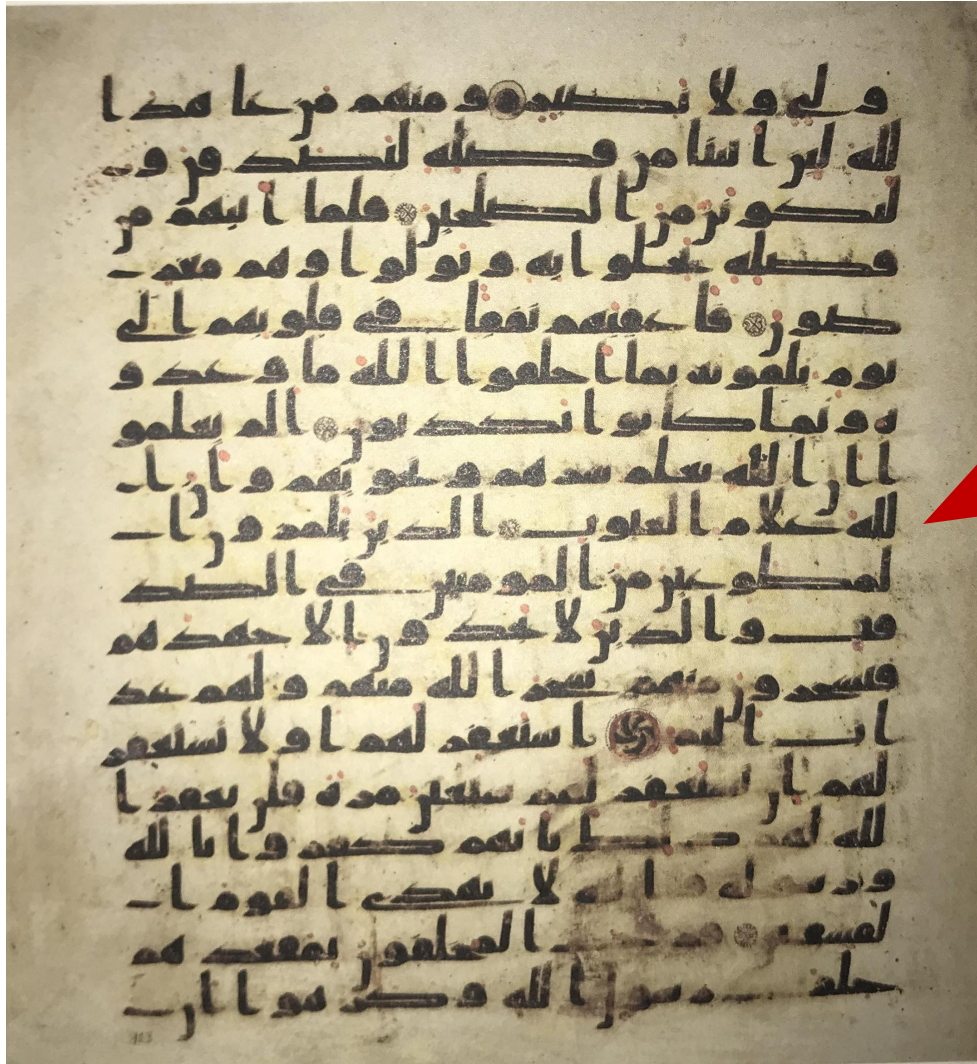 ولي ولا نصير ومنهم من عاهد ا
لله لئن اتنا من فضله لنصدقن و
لنكونن من الصلحين فلما اتيهم من
فضله بخلوا به وتولوا وهم معر
ضون فاعقبهم نفقا في قلوبهم الى
يوم يلقونه بما اخلفوا الله ما وعدو
ه وبما كانوا يكذبون الم يعلمو
ا ان الله يعلم سرهم ونجويهم وان ا
لله علام الغيوب الذين يلمزون ا
لمطوعين من المومنين في الصد
قت والذين لا يجدون الا جهدهم
فيسخرون منهم سخر الله منهم ولهم عذ
اب اليم استغفر لهم او لا تستغفر
لهم ان تستغفر لهم سبعين مرة فلن يغفر ا
لله لهم ذلك بانهم كفروا بالله
ورسوله والله لا يهدي القوم ا
لفسقين فرح المخلفون بمقعدهم
خلف رسول الله وكرهوا ان